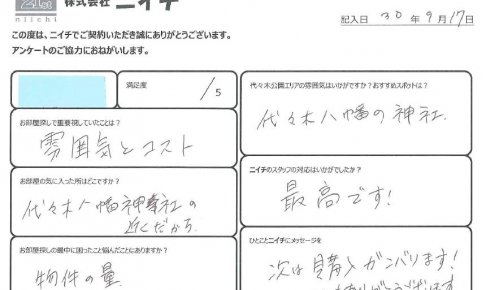 21st
niichi
株式会社 ニイチ
記入日 30年9月17日
この度は、ニイチでご契約いただき誠にありがとうございます。
アンケートのご協力におねがいします。
満足度
/5
お部屋探しで重要視していたことは?
雰囲気とコスト
お部屋の気に入った所はどこですか?
代々木八幡神社の
近くだから
お部屋探しの最中に困ったこと悩んだことはありますか?
物件の量
代々木公園エリアの雰囲気はいかがですか?おすすめスポットは?
代々木八幡の神社.
ニイチのスタッフの対応はいかがでしたか?
最高です!
ひとことニイチにメッセージを
次は購入ガンバります!
ありがとうございます